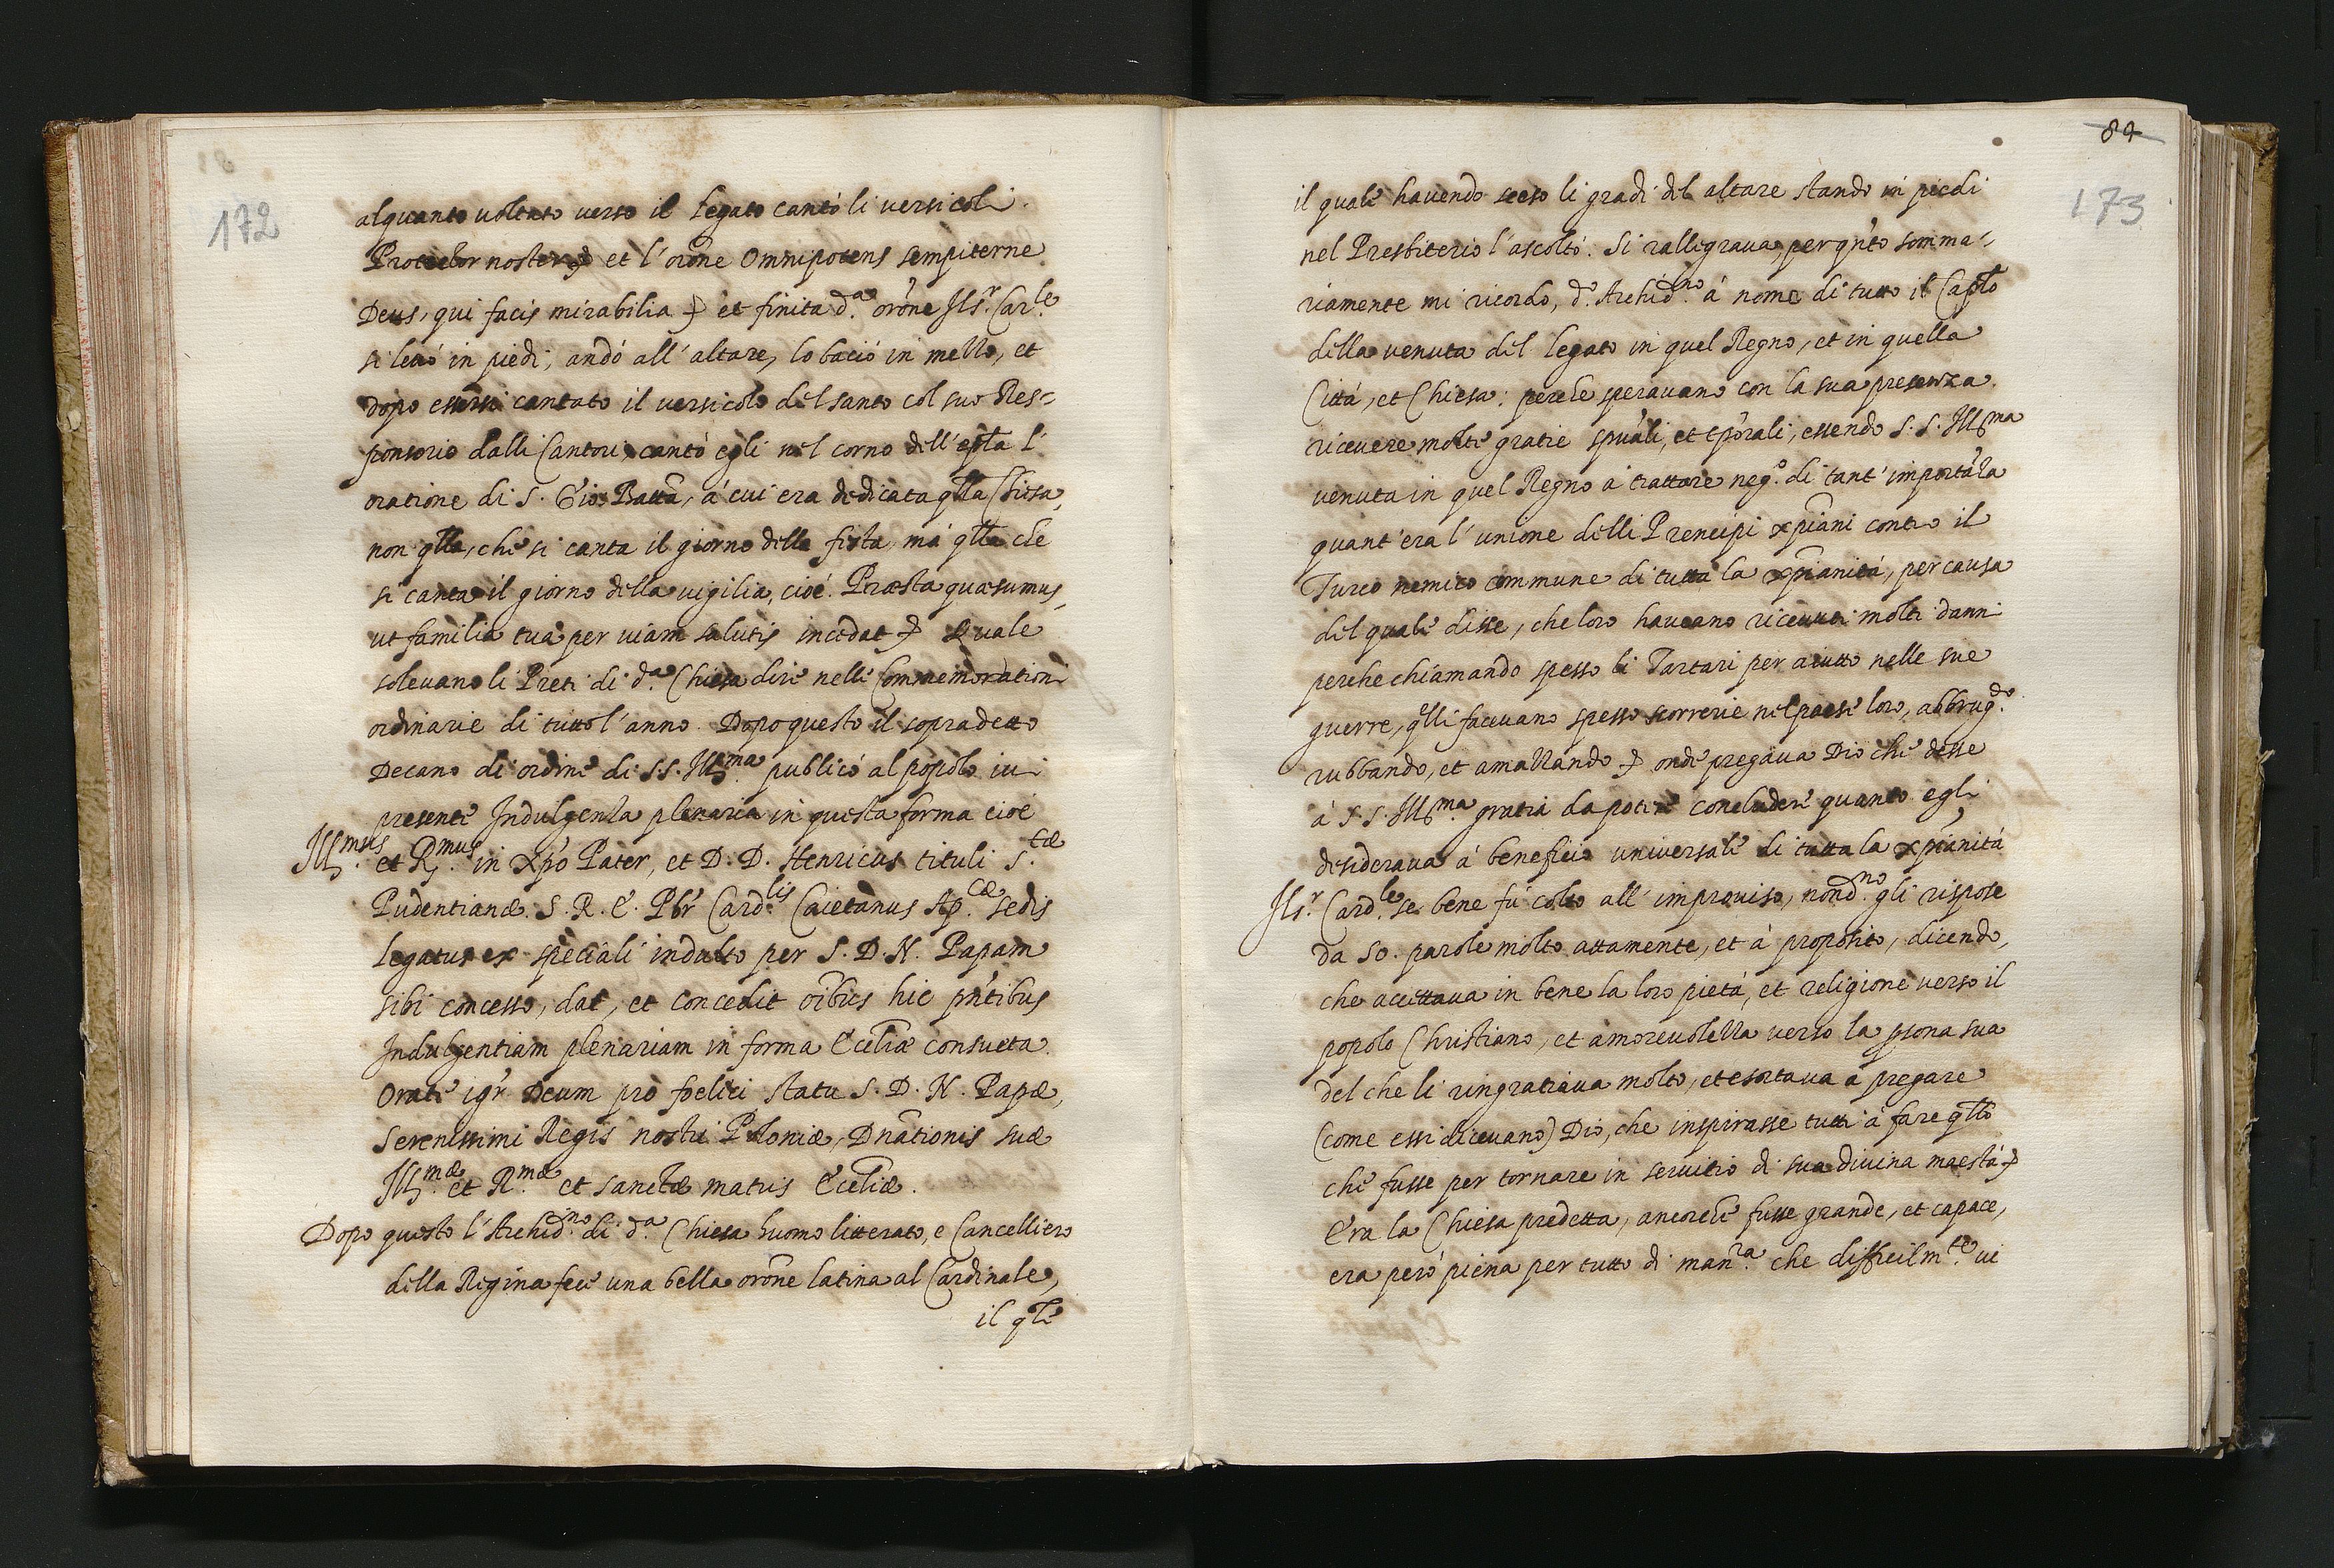 172
alquanto voltato verso il legato cantò li versicoli
Protector noster et l'orõne Omnipotens sempiterne
Deus, qui facis mirabilia et finita d.ª orõne Il s.r Car.le
si levò in piedi, andò all'altare, lo baciò in mezzo, et
dopo essersi cantato il versicolo del santo col suo Res=
ponsorio dalli Cantori, cantò egli nel corno dell'epla l'
oratione di S. Gio: Batta, à cui era dedicata qlla Chiesa,
non qlla, che si canta il giorno della festa, mà qlla che
si canta il giorno della vigilia, cioè. Præsta quæsumus,
ut familia tua per viam salutis incedat Quale
solevano li Preti di d.ª Chiesa dire nelle Commemorationi
ordinarie di tutto l'anno. Dopo questo il sopradetto
Decano di ordine di S.S. Ill.ma publicò al popolo ivi
presente Indulgenza plenaria in questa forma cioè
Ill.mus et R.mus in Xpõ Pater, et D. D. Henricus tituli S.tæ
Pudentianæ S. R. E. Pbr Card.lis Caietanus Ap.cæ sedis
legatus ex speciali indulto per S. D. N. Papam
sibi concesso, dat, et concedit oĩbus hic pñtibus
Indulgentiam plenariam in forma Ecclĩæ consueta.
Orate igr Deum pro fœlici statu S. D. N. Papæ,
Serenissimi Regis nostri Poloniæ, Dnãtionis suæ
Ill.mæ et R.mæ et sanctæ matris Ecclĩæ.
Dopo questo l'Archid.no di d.ª Chiesa huomo litterato, e Cancelliero
della Regina fece una bella orõne latina al Cardinale,
il qle
84
173
il quale havendo sceso li gradi del altare stando in piedi
nel Presbiterio l'ascoltò. Si rallegrava, per qñto somma=
riamente mi ricordo, d.º Archid.no à nome di tutto il Caplo
della venuta del legato in quel Regno, et in quella
Città, et Chiesa: perche speravano con la sua presenza
ricevere molte gratie spũali, et tpõrali, essendo S. S. Ill.ma
venuta in quel Regno à trattare neg.º di tant'importãza
quant'era l'unione delli Prencipi xpĩani contro il
Turco nemico commune di tutta la xpĩanità, per causa
del quale disse, che loro haveano ricevuti molti danni
perche chiamando spesso li Tartari per aiutto nelle sue
guerre, qlli facevano spesso scorrerie nel paese loro, abbrug.do
rubbando, et amazzando onde pregava Dio che desse
à S. S. Ill.ma gratia da poter concludere quanto egli
desiderava à beneficio universale di tutta la xpĩanità
Il s.r Card.le se bene fù colto all'improviso, nond.no gli rispose
da 50. parole molto attamente, et à proposito, dicendo,
che accettava in bene la loro pietà, et religione verso il
popolo Christiano, et amorevolezza verso la psona sua
del che li ringratiava molto, et esortava à pregare
(come essi dicevano) Dio, che inspirasse tutti à fare qllo
che fusse per tornare in servitio di sua divina maestà
Era la Chiesa predetta, ancorche fusse grande, et capace,
era però piena per tutto di man.ra che difficilm.te vi